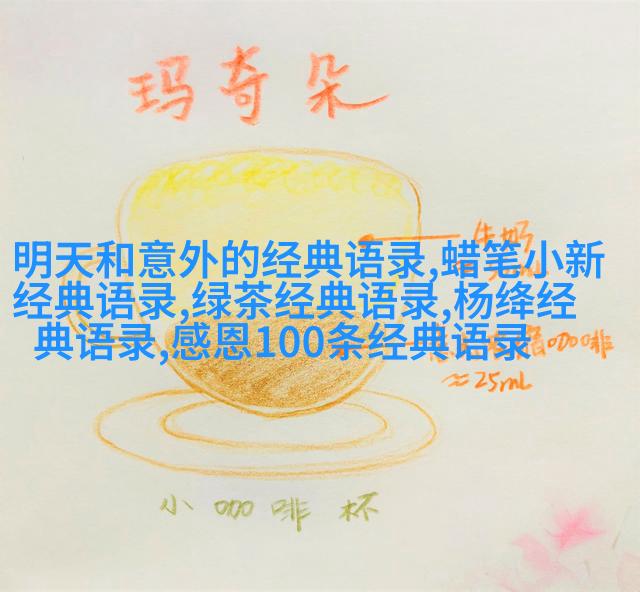 玛奇朵
牛奶
明天和意外的经典语录,蜡笔小新
经典语录,绿茶经典语录,杨绛经
典语录,感恩100条经典语录
咖啡
≈25mL
小咖啡杯